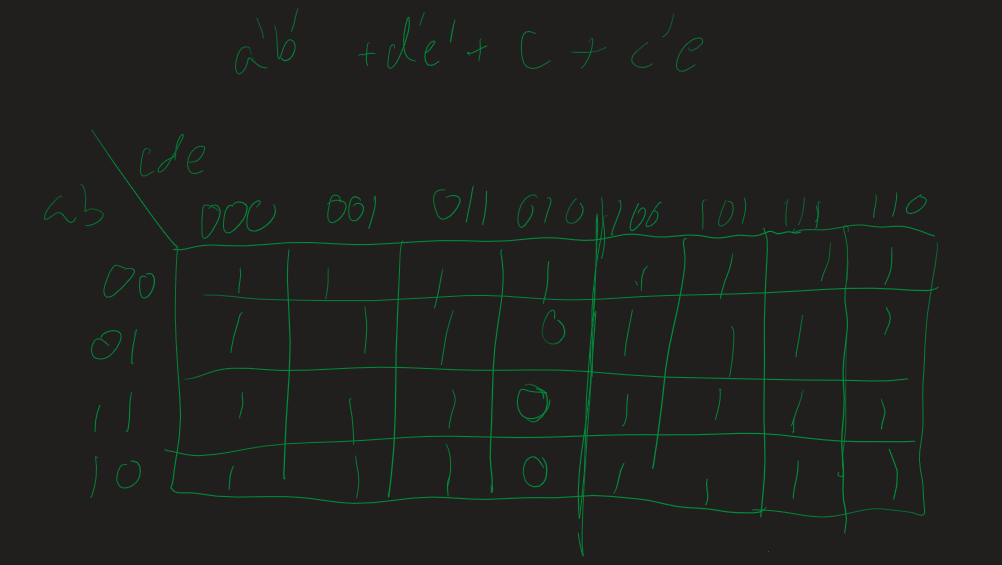 a'b' + d'e' + c + c'e
cde
ab
000 001 011 010 100 101 111 110
00 1 1 1 1 1 1 1 1
01 1 1 1 0 1 1 1 1
11 1 1 1 0 1 1 1 1
10 1 1 1 0 1 1 1 1